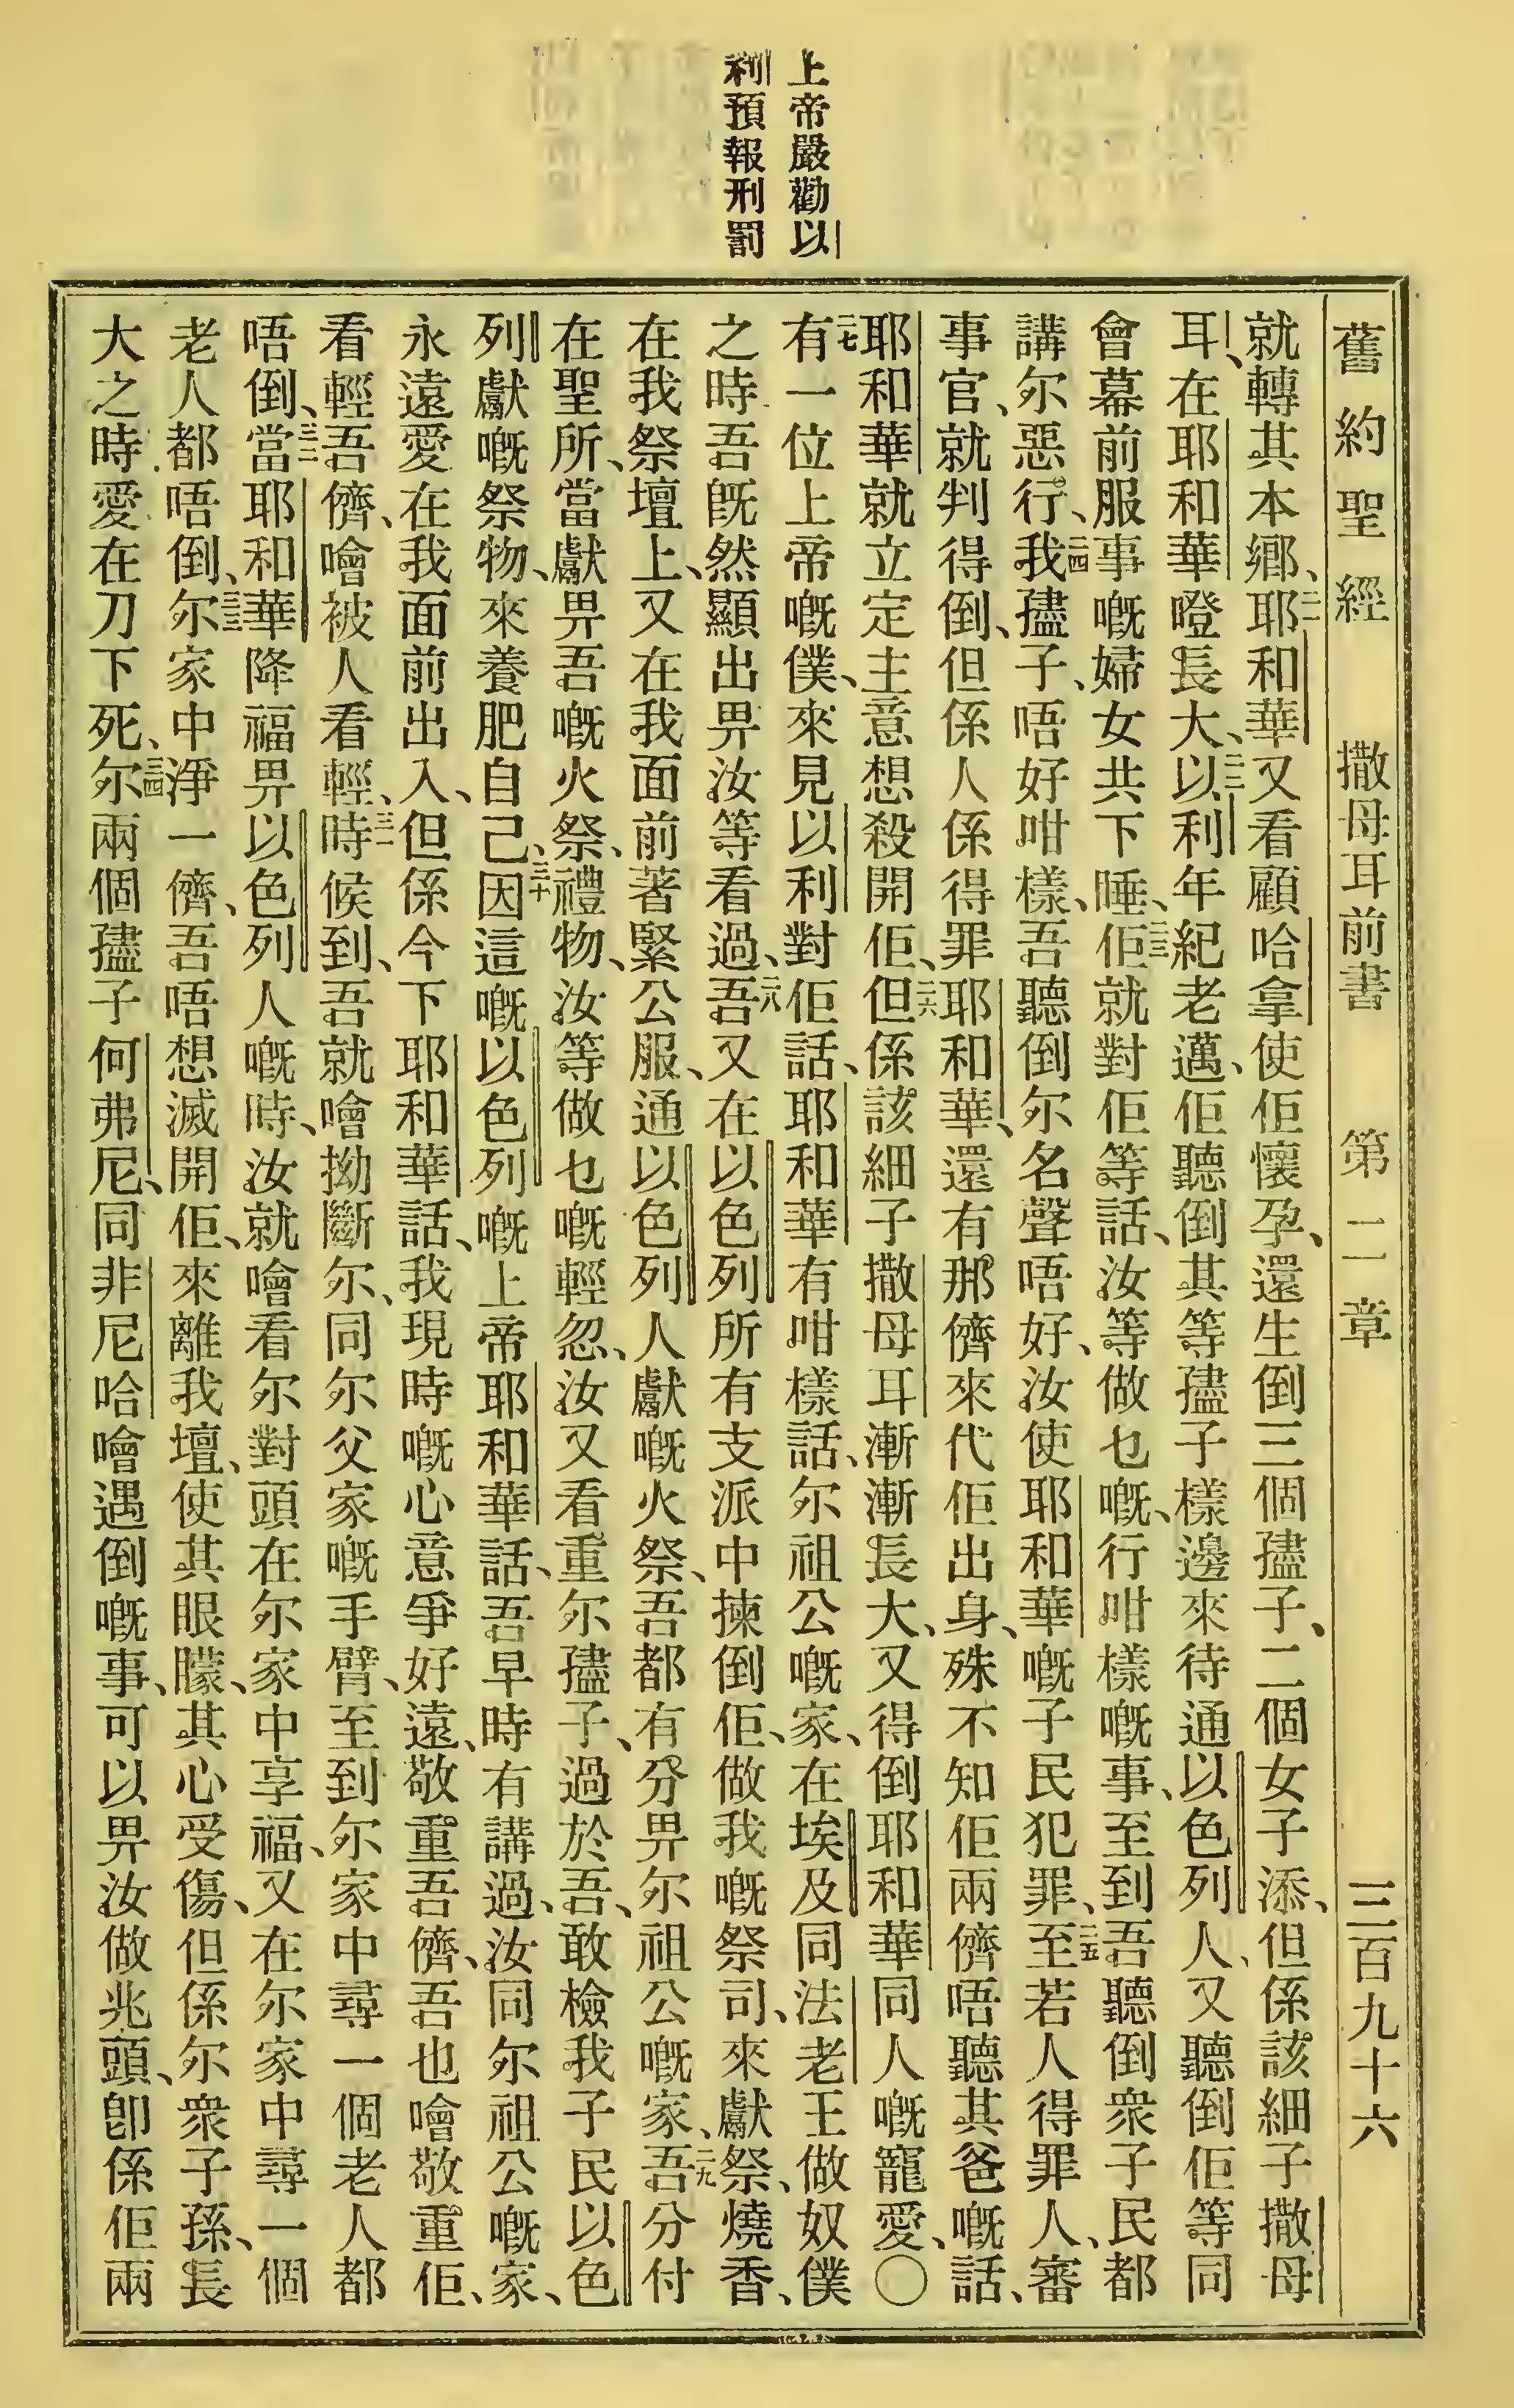 上帝嚴勸以
利預報刑罰
舊約聖經 撒母耳前書 第二章 三百九十六
就轉其本鄉、二一耶和華又看顧哈拿使佢懷孕、還生倒三個孻子、二個女子添、但係該細子撒母
耳、在耶和華嶝長大、二二以利年紀老邁、佢聽倒其等孻子樣邊來待通以色列人、又聽倒佢等同
會幕前服事嘅婦女共下睡、二三佢就對佢等話、汝等做乜嘅、行咁樣嘅事、至到吾聽倒衆子民都
講尔惡行、二四我孻子、唔好咁樣、吾聽倒尔名聲唔好、汝使耶和華嘅子民犯罪、二五至若人得罪人、審
事官、就判得倒、但係人係得罪耶和華、還有那儕來代佢出身、殊不知佢兩儕唔聽其爸嘅話、
耶和華就立定主意想殺開佢、二六但係該細子撒母耳漸漸長大、又得倒耶和華同人嘅寵愛、〇
二七有一位上帝嘅僕、來見以利對佢話、耶和華有咁樣話、尔祖公嘅家、在埃及同法老王做奴僕
之時吾旣然顯出畀汝等看過、二八吾又在以色列所有支派中揀倒佢、做我嘅祭司、來獻祭、燒香、
在我祭壇上、又在我面前著緊公服、通以色列人獻嘅火祭、吾都有分畀尔祖公嘅家、二九吾分付
在聖所、當獻畀吾嘅火祭、禮物、汝等做乜嘅輕忽、汝又看重尔孻子、過於吾、敢檢我子民以色
列獻嘅祭物、來養肥自己、三十因這嘅以色列嘅上帝耶和華話、吾早時有講過、汝同尔祖公嘅家、
永遠愛在我面前出入、但係今下耶和華話、我現時嘅心意爭好遠、敬重吾儕、吾也噲敬重佢、
看輕吾儕、噲被人看輕、三一時候到、吾就噲拗斷尔、同尔父家嘅手臂、至到尔家中尋一個老人都
唔倒、三二當耶和華降福畀以色列人嘅時、汝就噲看尔對頭在尔家中享福、又在尔家中尋一個
老人都唔倒、三三尔家中淨一儕、吾唔想滅開佢、來離我壇、使其眼矇、其心受傷、但係尔衆子孫、長
大之時、愛在刀下死、三四尔兩個孻子何弗尼、同非尼哈噲遇倒嘅事、可以畀汝做兆頭、卽係佢兩